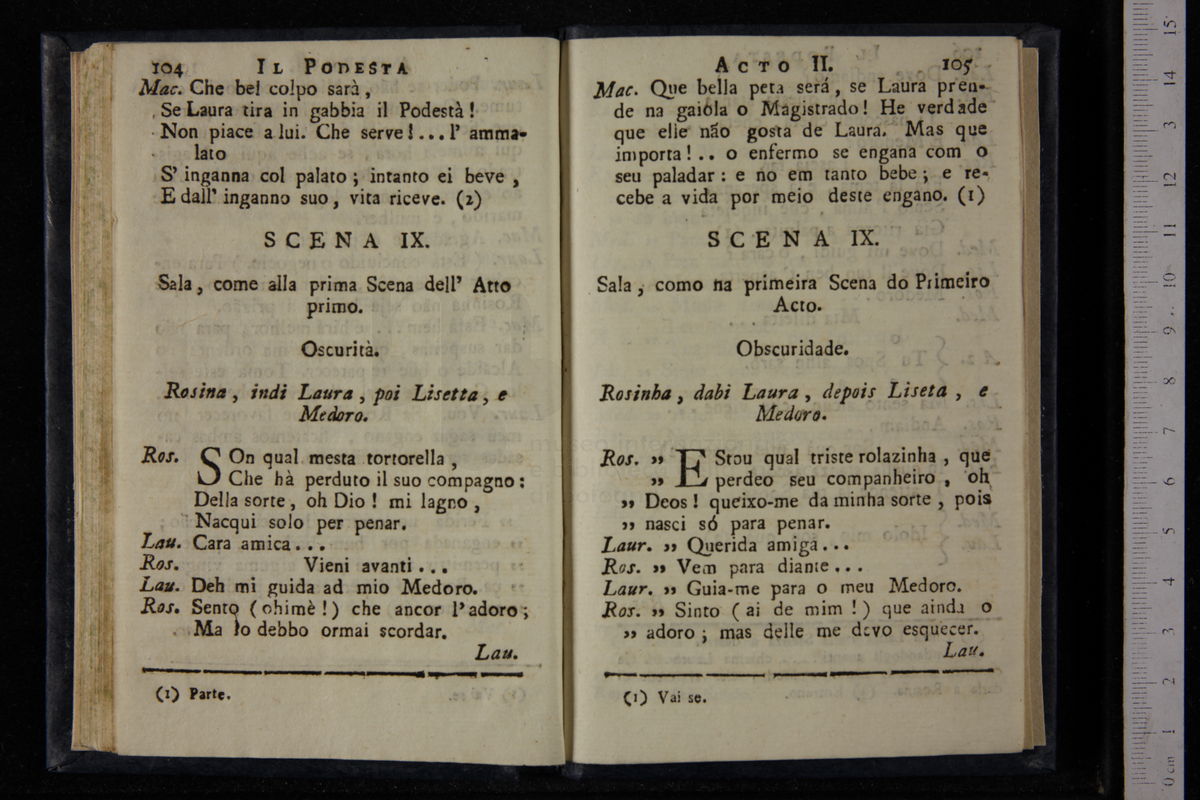 104 IL PODESTA
Mac. Che bel colpo sarà,
Se Laura tira in gabbia il Podestà!
Non piace a lui. Che serve!... l' amma-
lato
S' inganna col palato; intanto ei beve,
E dall' inganno suo, vita riceve. (2)
SCENA IX.
Sala, come alla prima Scena dell' Atto
primo.
Oscurità.
Rosina, indi Laura, poi Lisetta, e
Medoro.
Ros. SOn qual mesta tortorella,
Che hà perduto il suo compagno:
Della sorte, oh Dio! mi lagno,
Nacqui solo per penar.
Lau. Cara amica...
Ros. Vieni avanti...
Lau. Deh mi guida ad mio Medoro.
Ros. Sento (ohimè!) che ancor l'adoro;
Ma lo debbo ormai scordar.
Lau.
(1) Parte.
ACTO II. 105
Mac. Que bella peta será, se Laura pren-
de na gaióla o Magistrado! He verdade
que elle não gosta de Laura. Mas que
importa!.. o enfermo se engana com o
seu paladar: e no em tanto bebe; e re-
cebe a vida por meio deste engano. (1)
SCENA IX.
Sala, como na primeira Scena do Primeiro
Acto.
Obscuridade.
Rosinha, dahi Laura, depois Liseta, e
Medoro.
Ros. ,, EStou qual triste rolazinha, que
,, perdeo seu companheiro, oh
,, Deos! queixo-me da minha sorte, pois
,, nasci só para penar.
Laur. ,, Querida amiga...
Ros. ,, Vem para diante...
Laur. ,, Guia-me para o meu Medoro.
Ros. ,, Sinto (ai de mim!) que ainda o
,, adoro; mas delle me devo esquecer.
Lau.
(1) Vai se.
0 cm 1 2 3 4 5 6 7 8 9 10 11 12 3 14 15